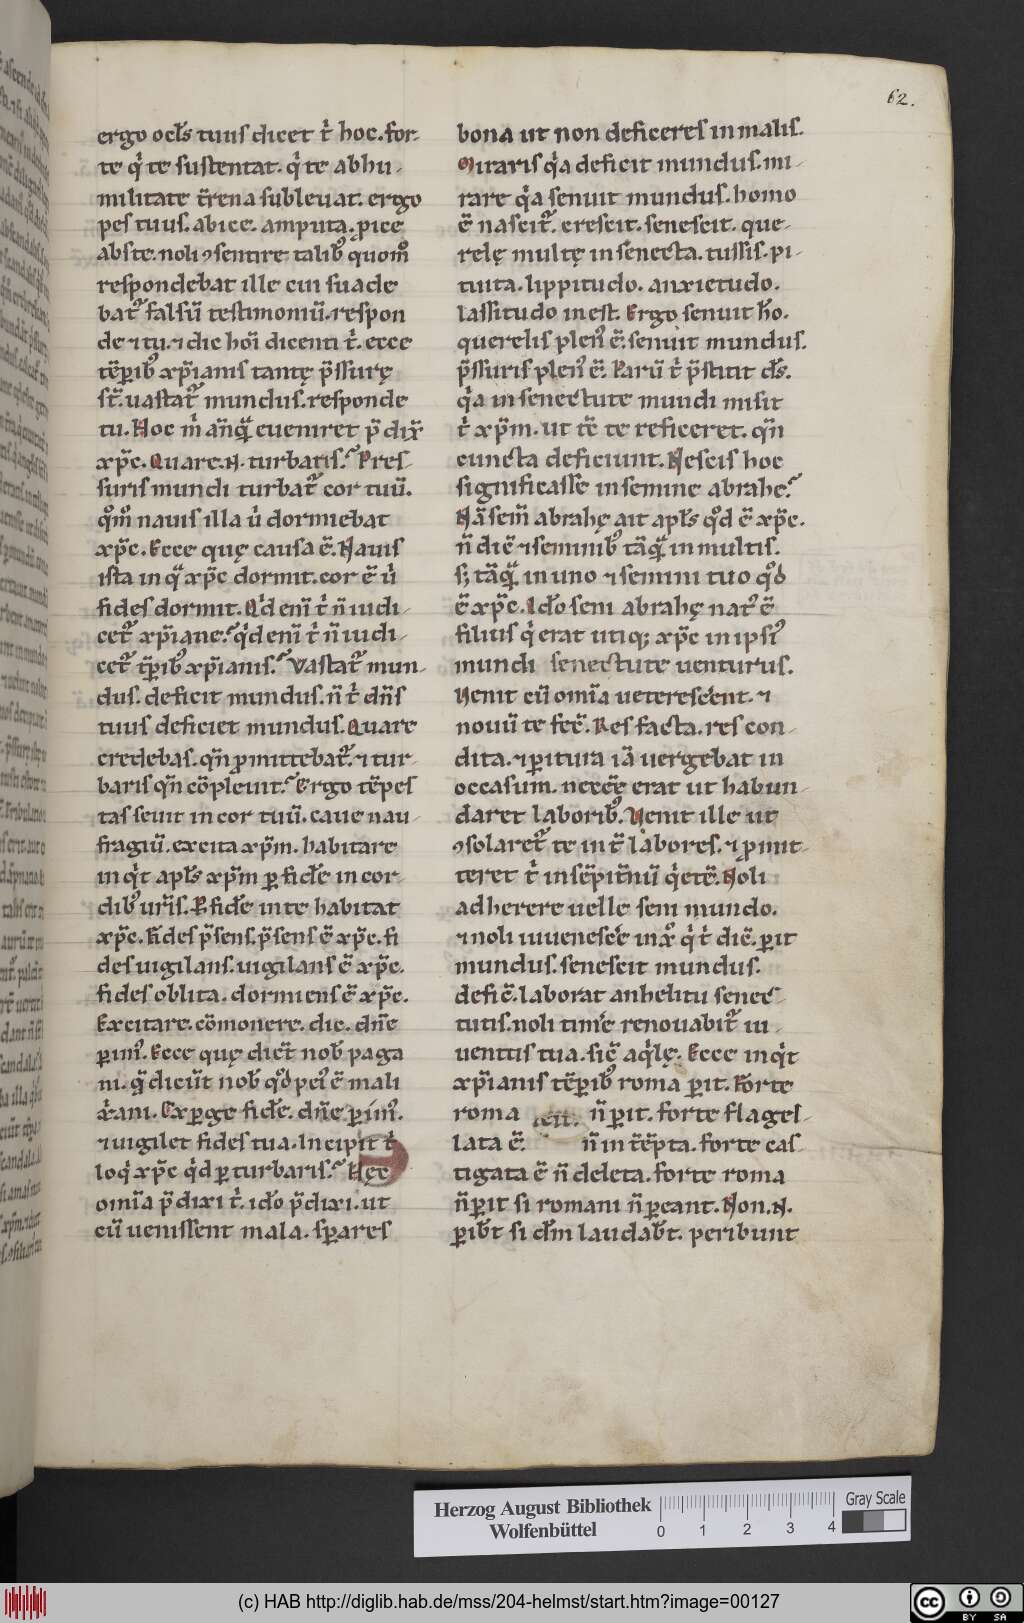 62.
ergo ocl̄s tuis dicet t̄ hoc. for-
te q̇ te sustentat. q̇ te ab hu-
militate t̄rena subleuat. ergo
pes tuus. abice. amputa. ꝓice
abs te. noli ꝯsentire talibꝰ quomͦ
respondebat ille cui suade
bat᷑ falsū testimoniū. respon
de ⁊ tu. ⁊ dic hoı̄ dicenti t̄. ecce
tēꝑibꝰ xp̄ianis tantę p̄ssurę
st̄. uastat᷑ mundus. responde
tu. Hoc m̄ anq̄ꝫ eueniret p̄dix̄
xp̄c. Quare .N. turbaris? Pres-
suris mundi turbat᷑ cor tuū.
qͦmͦ nauis illa u̇ dormiebat
xp̄c. Ecce quę causa ē. Nauis
ista in q̄ xp̄c dormit. cor ē u̇
fides dormit. Qd̄ enī t̄ n̄ iudi-
cet᷑ xp̄iane? qd̄ enī t̄ n̄ iudi-
cet᷑ tꝑibꝰ xp̄ianis? Vastat᷑ mun-
dus. deficit mundus. n̄ t̄ dn̄s
tuus deficiet mundus. Quare
credebas. qn̄ ꝓmittebat᷑. ⁊ tur-
baris qn̄ cōpleuit? Ergo tēpes
tas seuit in cor tuū. caue nau-
fragiū. excita xp̄m. habitare
inqt̄ apl̄s xp̄m ꝑ fidē in cor-
dibꝰ ur̄is. ꝑ fidē in te habitat
xp̄c. Fides p̄sens. p̄sens ē xp̄c. fi
des uigilans. uigilans ē xp̄c.
fides oblita. dormiens ē xp̄c.
Excitare. cōmonere. dic. dn̄e
ꝑimꝰ. Ecce quę dicūt nob̄ paga
ni. q̄ dicūt nob̄ qd̄ peiꝰ ē mali
xr̄ani. Exꝑge fidē. dn̄e ꝑimꝰ.
⁊ uigilet fides tua. Incipit t̄
loq̇ xp̄c qd̄ ꝑturbaris? Hęc
omīa p̄dixi t̄. ido p̄dixi. ut
cū uenissent mala. sꝑares
bona ut non deficeres in malis.
Miraris q̇a deficit mundus. mi-
rare q̇a senuit mundus. homo
ē nascit᷑. crescit. senescit. que-
relę multę in senecta. tussis. pi-
tuita. lippitudo. anxietudo.
lassitudo inest. Ergo senuit hō.
querelis plenꝰ ē. senuit mundus.
p̄ssuris plenꝰ ē. Parū t̄ p̄stitit ds̄.
q̇a in senectute mundi misit
t̄ xp̄m. ut tc̄ te reficeret. qn̄
cuncta deficiunt. Nescis hoc
significasse in semine abrahe?
Nā sem̄ abrahę ait apl̄s qd̄ ē xp̄c.
n̄ diē ⁊ seminibꝰ tāq̄ꝫ in multis.
sꝫ tāq̄ꝫ in uno ⁊ semini tuo qd̄
ē xp̄c. Ido seni abrahę natꝰ ē
filius q̇ erat utiqꝫ xp̄c in ipsiꝰ
mundi senectute uenturus.
Venit cū omīa ueterescēnt. ⁊
nouū te fec̄. Res facta. res con-
dita. ⁊ ꝑitura iā uergebat in
occasum. neccē erat ut habun-
daret laboribꝰ. Venit ille ut
ꝯsolaret᷑ te int̄ labores. ⁊ ꝓmit-
teret t̄ in sēpit̄nū q̇etē. Noli
adherere uelle seni mundo.
⁊ noli iuuenescē in xͦ q̇ t̄ dic̄. ꝑit
mundus. senescit mundus.
defic̄. laborat anhelitu senec-
tutis. noli timē renouabit᷑ iu-
uentus tua. sic̄ aq̇lę. Ecce inqt̄
xp̄ianis tēꝑibꝰ roma ꝑit. Forte
roma n̄ ꝑit. forte flagel-
lata ē. n̄ int̄ēpta. forte cas-
tigata ē n̄ deleta. forte roma
n̄ ꝑit si romani n̄ ꝑeant. Non .N.
ꝑib̄t si dm̄ laudab̄t. peribunt
Herzog August Bibliothek
Wolfenbüttel
0 1 2 3 4
Gray Scale
(c) HAB http://diglib.hab.de/mss/204-helmst/start.htm?image=00127
cc BY SA